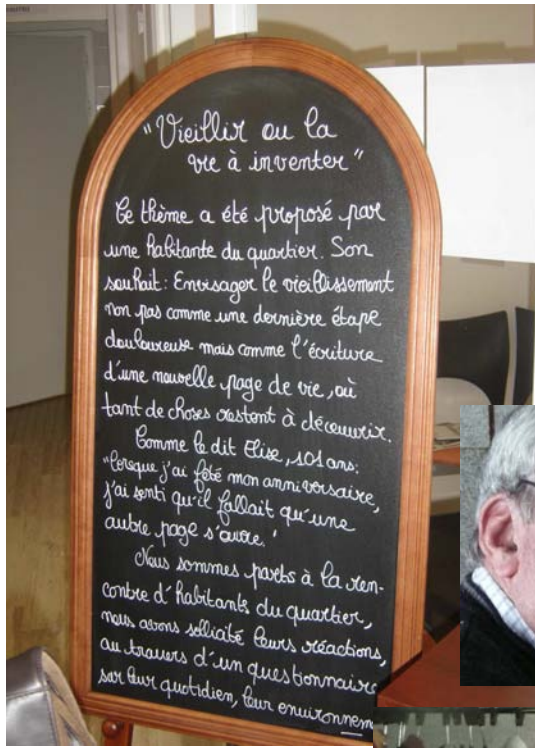 "Vieillir ou la
vie à inventer"
Ce thème a été proposé par
une habitante du quartier. Son
souhait : Envisager le vieillissement
non pas comme une dernière étape
douloureuse mais comme l'écriture
d'une nouvelle page de vie, où
tant de choses restent à découvrir.
Comme le dit Elise, 101 ans :
"Lorsque j'ai fêté mon anniversaire,
j'ai senti qu'il fallait qu'une
autre page s'ouvre."
Nous sommes partis à la ren-
contre d'habitants du quartier,
nous avons sollicité leurs réactions,
au travers d'un questionnaire
sur leur quotidien, leur environnem